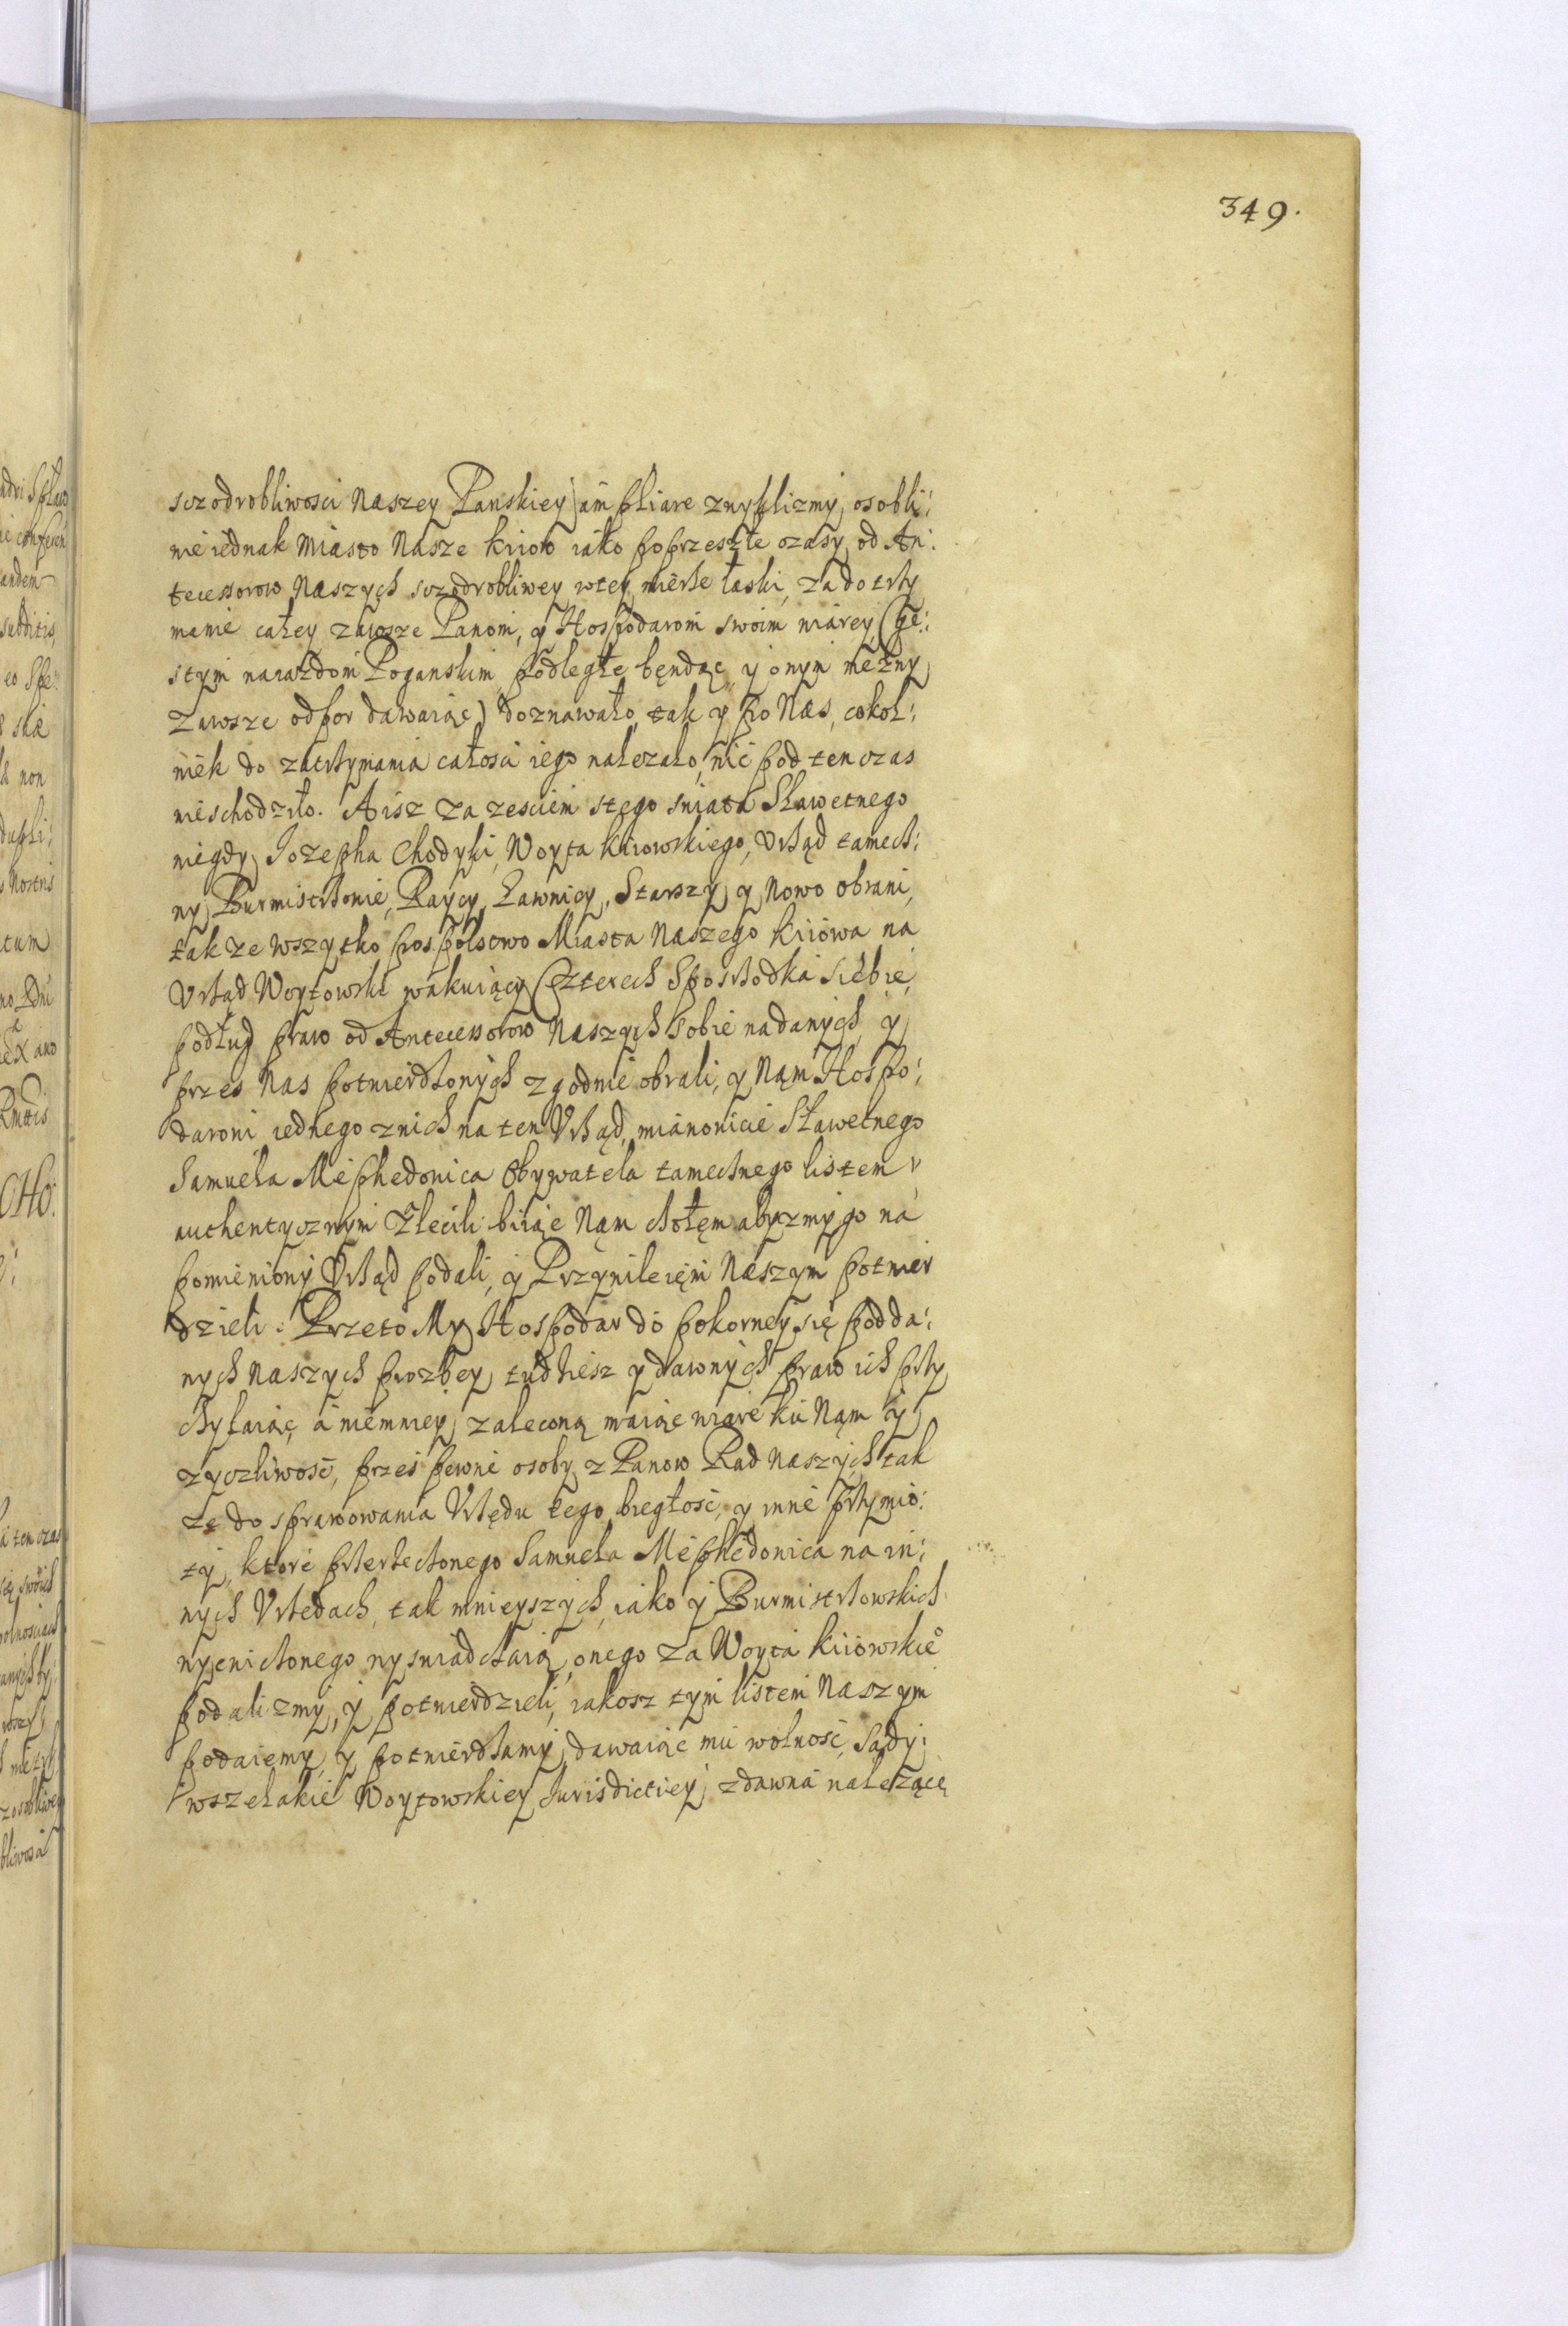 349.
szczodrobliwosci Naszey Panskiey) am pliare zwyklizmy, osobli:
wie iednak Miasto Nasze Kiiow iako poprzeszłe czasy, od An:
tecessorow Naszych szczodrobliwey wtey mierze łaski, za dotrzy
manie całey zawsze Panom, y Hospodarom swoim wiarey, (Czę:
stym naiazdom Poganskim podległe będąc, y onym mężny
Zawsze odpor dawaiąc) doznawało, tak y po Nas, cokol:
wiek do zatrzymania całosci iego nalezało, nic pod ten czas
nieschodziło. A isz za zesciem stego swiata Sławetnego
niegdy Iozepha Chodyki, Woyta Kiiowskiego, Urząd tamecz:
ny, Burmistrzowie, Raycy, Ławnicy, Starszy, y nowo obrani,
takze wszytko pospolstwo Miasta Naszego Kiiowa na
Urząd Woytowski wakuiący Czterech Sposrzodka siebie,
podług praw od Antecessorow Naszych sobie nadanych, y
przes Nas potwierdzonych zgodnie obrali, y Nam Hospo:
darowi iednego znich na ten Urząd, mianowicie Sławetnego
Samuela Mephedowica Obywatela tamecznego listem
authentycznym Zlecili biiąc Nąm czołęm abyzmy go na
pomieniony Urząd podali, y Przywileięm Naszym potwier
dzieli. Przeto My Hospodar do pokorney się podda:
nych Naszych prozbey, tudziesz y dawnych praw ich przy
chylaiąc, a niemniey zaleconą maiąc wiarę ku Nąm y
zyczliwosć, przes pewne osoby z Panow Rad Naszych tak
Ze do sprawowania Urzędu tego biegłosć, y inne przymio:
ty, ktore przerzeczonego Samuela Mephedowica na in:
nych Urzedach, tak mnieyszych, iako y Burmistrzowskich
wycwiczonego wyswiadczaią, onego za Woyta Kiiowskieº
podalizmy, y potwierdzieli, iakosz tym listem Naszym
podaiemy, y potwierdzamy, dawaiąc mu wolnosć, Sądy
wszelakie Woytowskiey Iurisdictiey zdawna należące